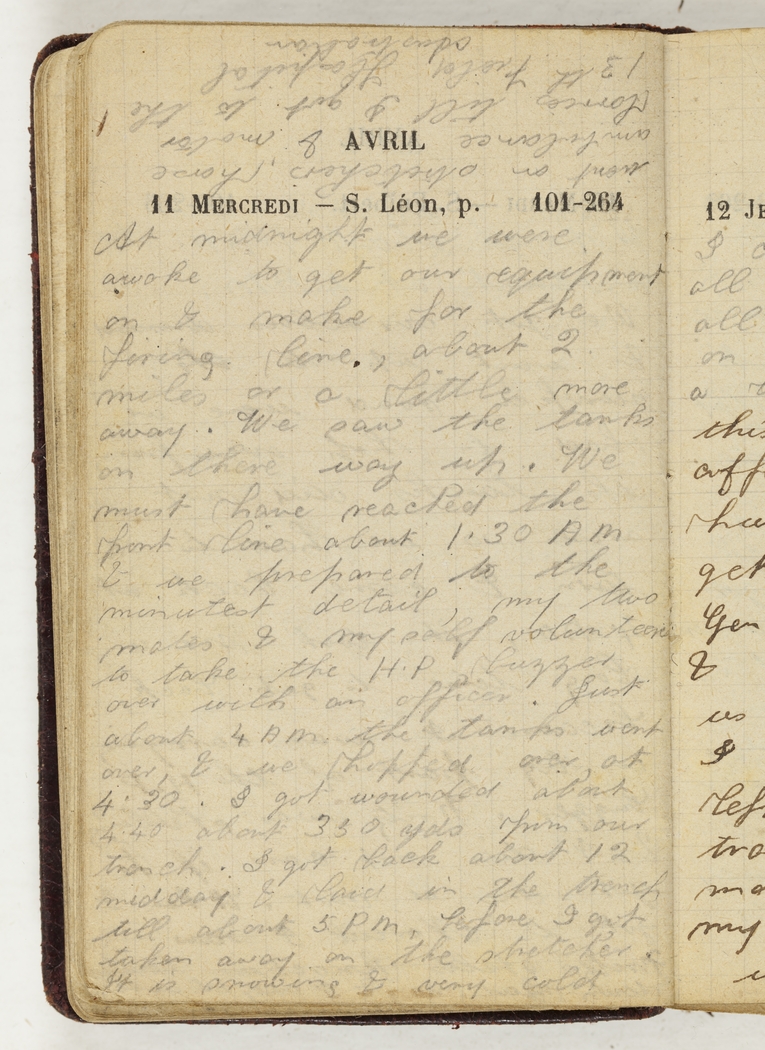 AVRIL
11 MERCREDI – S. Léon, p. 101-264
At midnight we were
awoke to get our equipment
on & make for the
firing line, about 2
miles or a little more
away. We saw the tanks
on there way up. We
must have reached the
front line about 1.30 AM
& we prepared to the
minutest detail, my two
mates & myself volunteered
to take the H.P buzzer
over with an officer. Just
about 4 AM. the tanks went
over, & we hopped over at
4.30. I got wounded about
4.40 about 350 yds from our
trench. I got back about 12
midday & laid in the trench
till about 5 PM, before I got
taken away on the stretcher.
It is snowing & very cold
went on stretchers, horse
ambulance & motor
lorries till I got to the
13th Field Hospital
Australian
12 JE
I
all
all
on
a
this
off
get
Gen
&
us
I
left
tra
ma
my